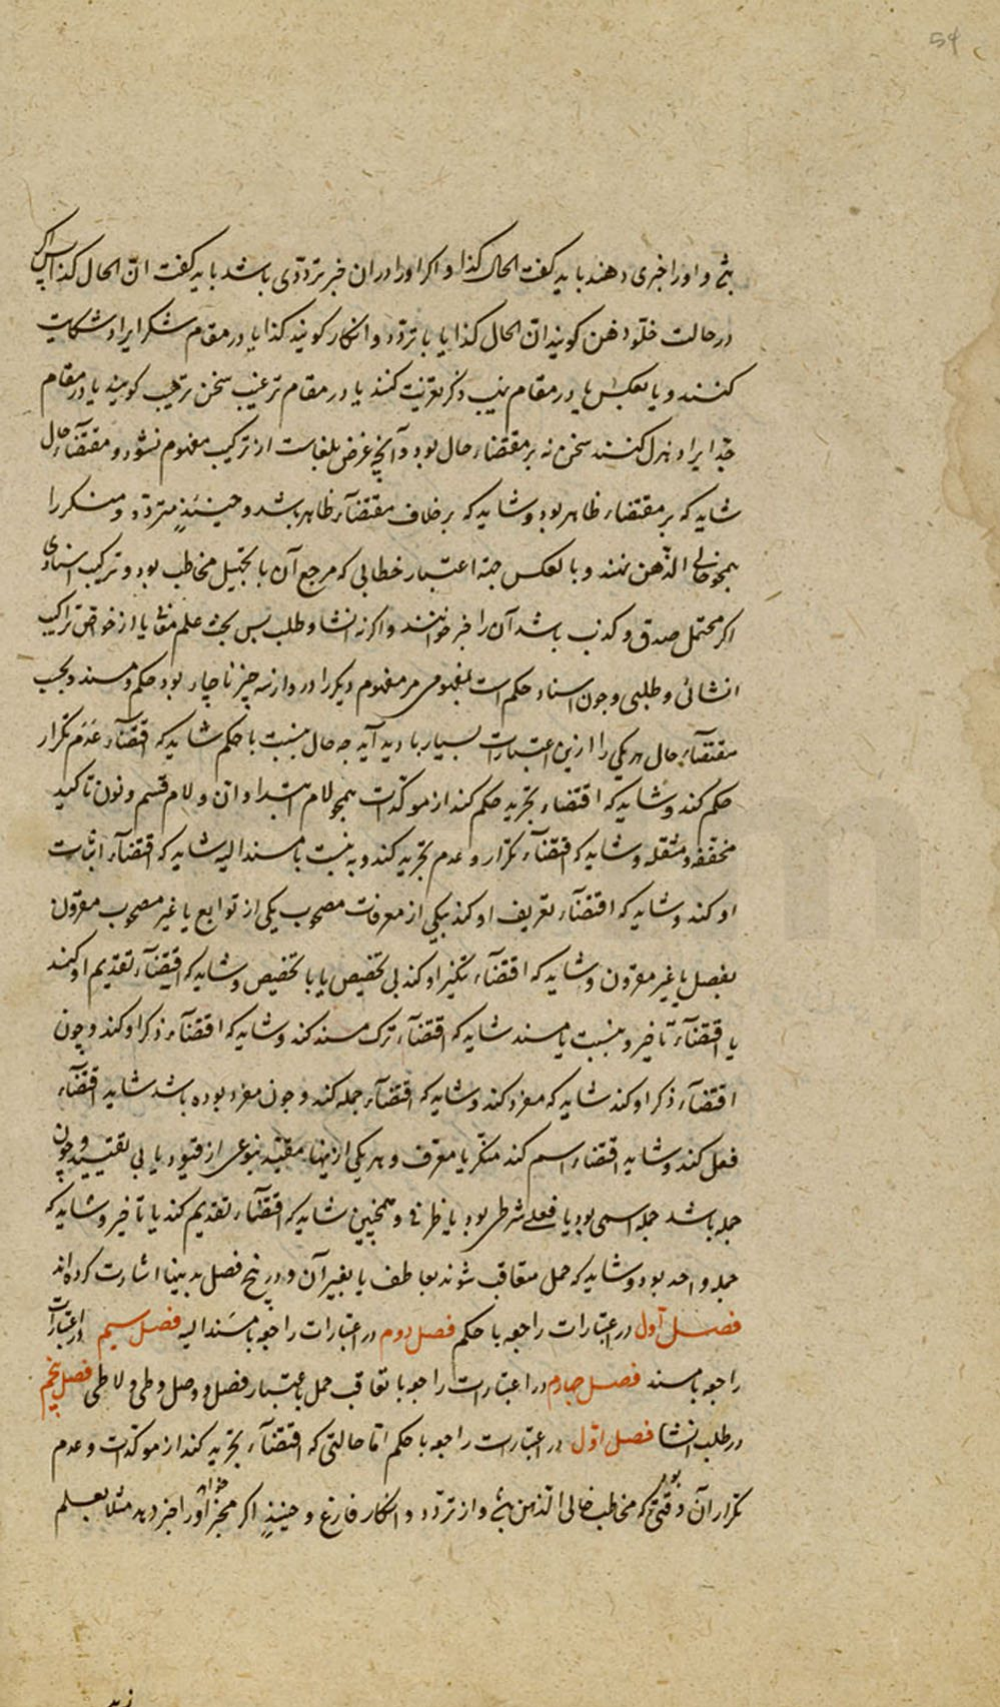 54
بشی و او را خبری دهند باید کفت الحال کذا و اکر او را در آن خبر تردّدی باشد باید کفت انّ الحال کذا پس اکر
در حالت خلوّ ذهن کویند انّ الحال کذا یا با تردّد و انکار کویند کذا یا در مقام شکر ایراد شکایت
کنند و یا بعکس یا در مقام ذکر تعزیت کنند یا در مقام ترغیب سخن ترهیب کویند یا در مقام
جدّ ایراد هزل کنند سخن نه بر مقتضاء حال بود و آنچه غرض بلغاست از ترکیب مفهوم نشود و مقتضآء حال
شاید که بر مقتضاء ظاهر بود و شاید که بر خلاف مقتضآء ظاهر باشد و حینئذٍ متردّد و منکر را
همچو خالی الذّهن نهند و بالعکس جهة اعتبار خطابی که مرجع آن با تخییل مخاطب بود و ترکیب اسنادی
اکر محتمل صدق و کذب باشد آن را خبر خوانند و اکر نه انشا و طلب پس بحث علم معانی یا از خواصّ تراکیب
انشائی و طلبی و چون اسناد حکم است بمفهومی مر مفهوم دیکر را درو از سه چیز ناچار بود حکم و مسند و بحسب
مقتضآء حال هر یکی را ازین اعتبارات بسیار با دید آید چه حال بنسبت با حکم شاید که اقتضآء عدم تکرار
حکم کند و شاید که اقتضاء تجرید حکم کند از موکّدات همچو لام ابتدا و انّ و لام قسم و نون تاکید
مخففه و مثقله و شاید که اقتضآء تکرار و عدم تجرید کند و به نسبت با مسند الیه شاید که اقتضآء اثبات
او کند و شاید که اقتضآء تعریف او کند بیکی از معرفات مصحوب یکی از توابع یا غیر مصحوب مقرون
بفصل یا غیر مقرون و شاید که اقتضآء تنکیر او کند بی تخصیص یا با تخصیص و شاید که اقتضآء تقدیم او کند
یا اقتضآء تأخیر و بنسبت با مسند شاید که اقتضآء ترک مسند کند و شاید که اقتضآء ذکر او کند و چون
اقتضآء ذکر او کند شاید که مفرد کند و شاید که اقتضآء جمله کند و چون مفرد بوده باشد شاید اقتضآء
فعل کند و شاید اقتضاء اسم کند منکّر یا معرّف و هر یکی ازینها مقیّد بنوعی از قیود یا بی تقیید و چون
جمله باشد جمله اسمی بود یا فعلی شرطی بود یا ظرفی و همچنین شاید که اقتضآء تقدیم کند یا تأخیر و شاید که
جمله واحد بود و شاید که جمل متعاقب شوند بعاطف یا بغیر آن و در پنج فصل بدینها اشارت کرده اند
فصل اوّل در اعتبارات راجعه با حکم فصل دوم در اعتبارات راجعه با مسند الیه فصل سیم در اعتبارات
راجعه با مسند فصل چهارم در اعتبارات راجعه با تعاقب جمل باعتبار فصل و وصل و طی و لا طی فصل پنجم
در طلب انشا فصل اوّل در اعتبارات راجعه با حکم امّا حالتی که اقتضآء تجرید کند از موکّدات و عدم
تکرار آن وقتی بود که مخاطب خالی الذهن بشی و از تردّد و انکار فارغ و حینئذٍ اکر مخبر او را خبر دهد مثلا بعلم
زید